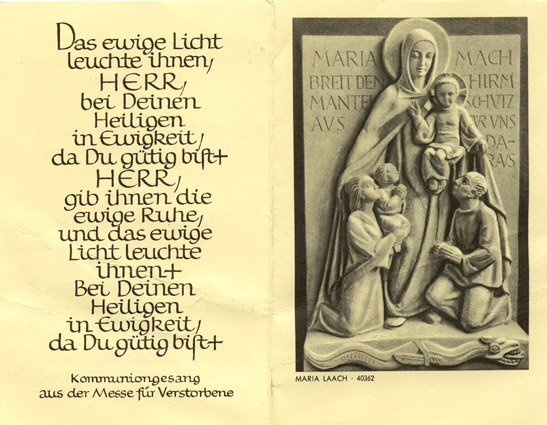 Das ewige Licht
leuchte ihnen,
HERR,
bei Deinen
Heiligen
in Ewigkeit,
da Du gütig bist+
HERR,
gib ihnen die
ewige Ruhe,
und das ewige
Licht leuchte
ihnen+
Bei Deinen
Heiligen
in Ewigkeit,
da Du gütig bist+
Kommuniongesang
aus der Messe für Verstorbene
MARIA MACH
BREIT DEN SCHIRM
MANTEL SCHUTZ
AVS FÜR VNS
DA-
RAVS
MARIA LAACH · 40362